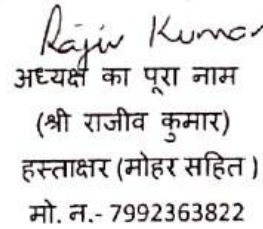 Rajiv Kumar
अध्यक्ष का पूरा नाम
(श्री राजीव कुमार)
हस्ताक्षर (मोहर सहित )
मो. न.- 7992363822